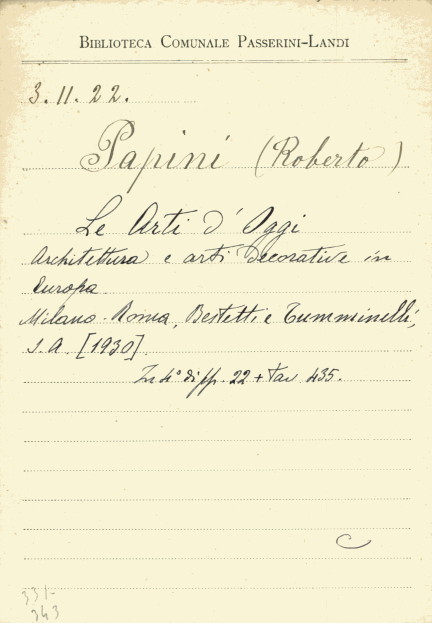 BIBLIOTECA COMUNALE PASSERINI-LANDI
3.11.22.
Papini (Roberto)
Le Arti d'Oggi
Architettura e arti decorative in
Europa.
Milano-Roma, Bestetti e Tumminelli,
S.A. [1930].
In 4° di pp. 22 + tav 435.
C
331-
343